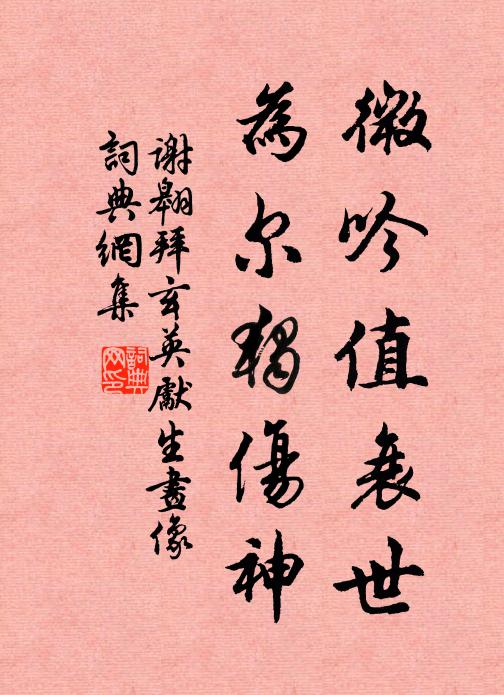 微吟值衰世
為尔獨傷神
謝翱拜玄英獻生畫像
詞典網集
詞典
网印